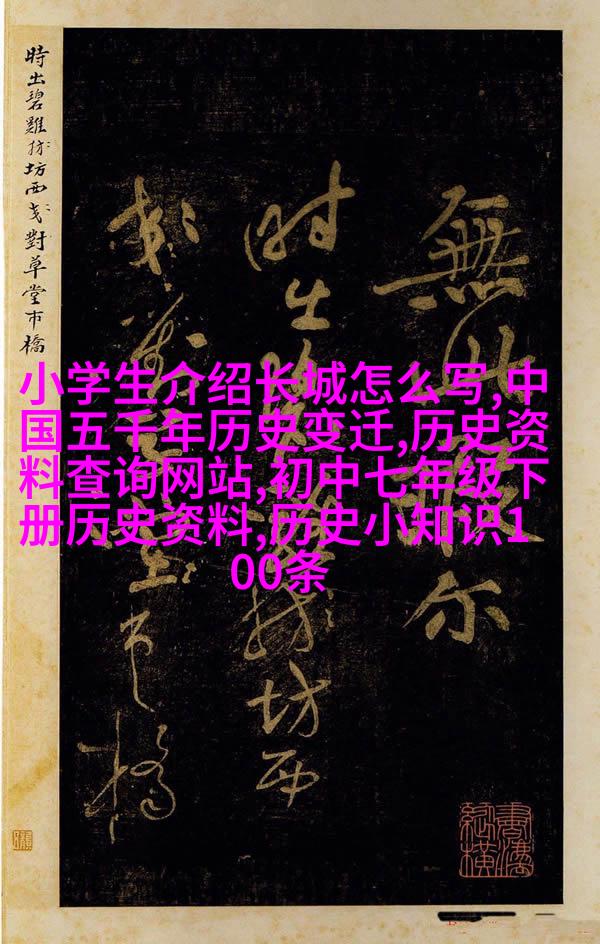 小学生介绍长城怎么写,中
国五千年历史变迁,历史资
料查询网站,初中七年级下
册历史资料,历史小知识1
00条
無此尔
时出坊西
市橋
時出碧雞坊西對草堂市橋